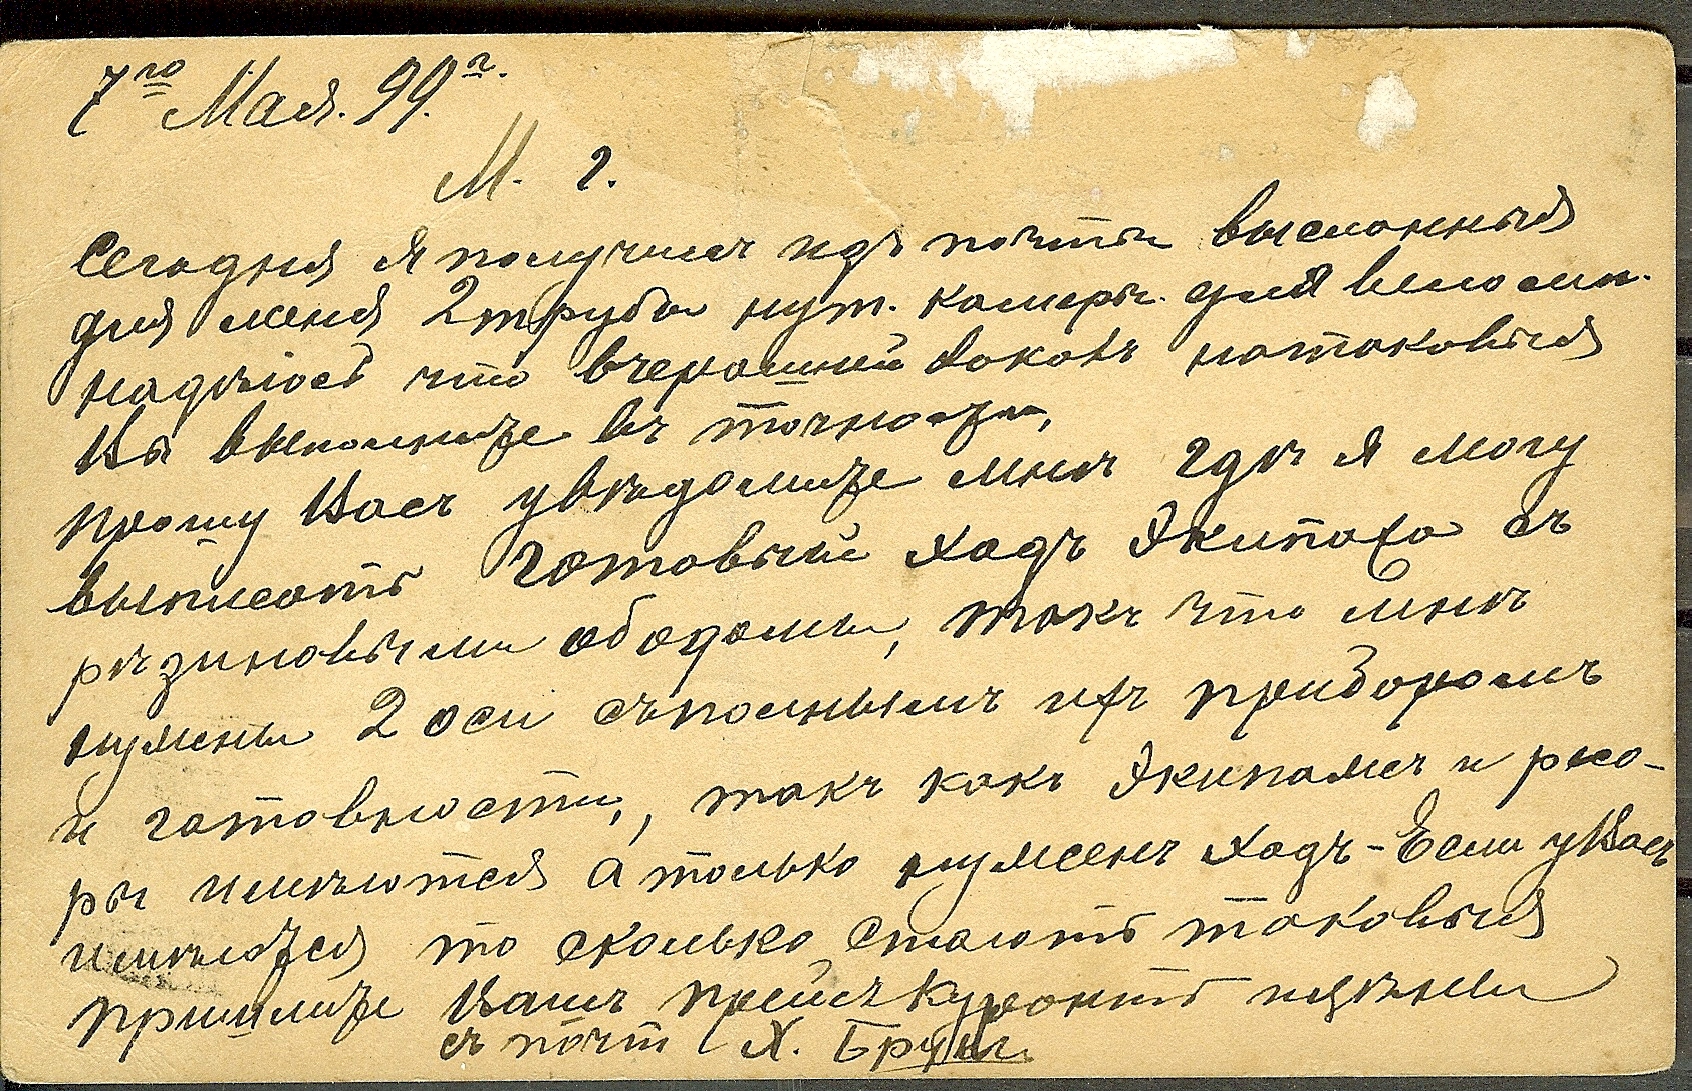 7го Мая. 99г.
М. г.
Сегодня я получилъ изъ почты высланныя
для меня 2 трубы нут. камеры для велосип.
надѣюсь что вчерашній заказъ на таковыя
Вы выполните въ точности,
прошу Васъ увѣдомите мнѣ гдѣ я могу
выписать готовый ходъ экипажа съ
рѣзиновыми ободами, такъ что мнѣ
нужны 2 оси съ полнымъ ихъ приборомъ
и готовности, такъ какъ экипажъ и рессо-
ры имѣются а только нуженъ ходъ - Если у Васъ
имѣются то сколько стоютъ таковыя
пришлите Вашъ прейсъ курантъ и цѣны
съ почт Х. Брунъ